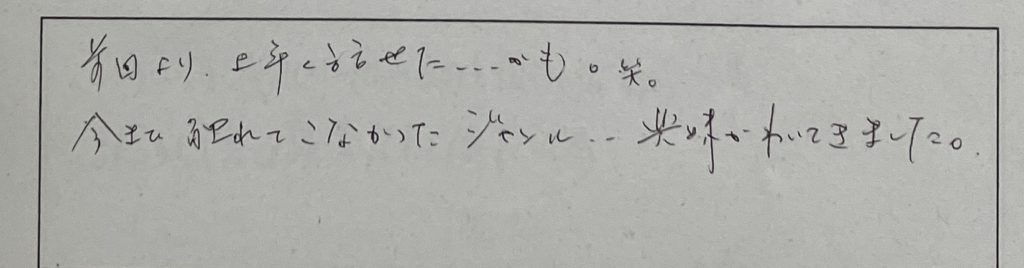 前回より、上手く話せた....かも。笑。
今まで触れてこなかったジャンル.. 興味がわいてきました。